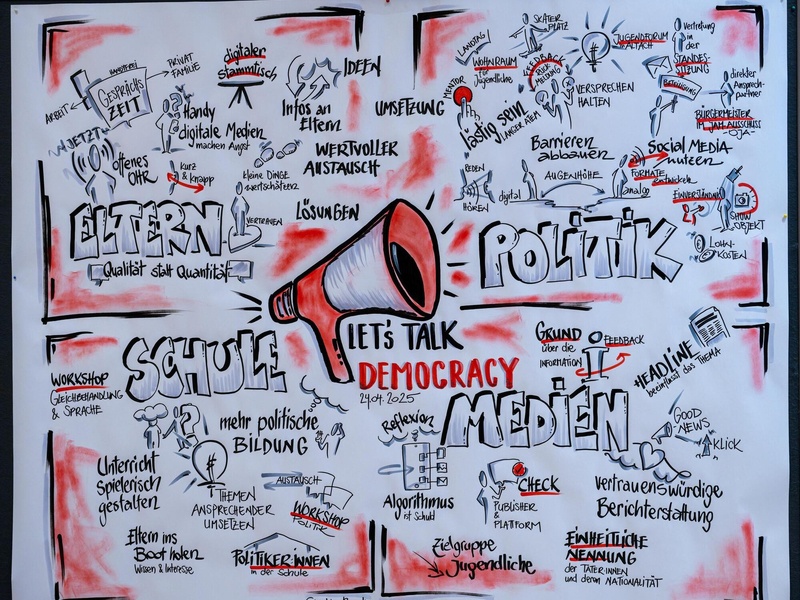 HANDYFREI
GESPRÄCHS
ZEIT
ARBEIT
PRIVAT
FAMILIE
digitaler
stammtisch
IDEEN
Infos an
Eltern
Handy
digitale Medien
machen Angst
JETZT
offenes
OHR
kurz
& knapp
kleine DINGE
wertschätzen
WERTVOLLER
AUSTAUSCH
UMSETZUNG
VERTRAUEN
LÖSUNGEN
ELTERN
Qualität statt Quantität
LANDTAG
WOHNRAUM
für
Jugendliche
SKATER
PLATZ
FEEDBACK
RÜCK
MELDUNG
JUGENDFORUM
ALTACH
VERSPRECHEN
HALTEN
Vertretung
in
der
STANDES-
SITZUNG
direkter
Ansprech-
partner
BETEILIGUNG
BÜRGERMEISTER
JAM AUSSCHUSS
-OJA-
MENTOR
lästig sein
LÄNGER ATEM
Barrieren
abbauen
AUGENHÖHE
REDEN
HÖREN
digital
analog
Social MEDIA
nutzen
FORMATE
entwickeln
EINVERSTÄNDNIS
SHOW
OBJEKT
LOHN-
KOSTEN
POLITIK
LET'S TALK
DEMOCRACY
24.04.2025
SCHULE
WORKSHOP
GLEICHBEHANDLUNG
& SPRACHE
mehr politische
BILDUNG
Unterricht
Spielerisch
gestalten
THEMEN
ANSPRECHENDER
UMSETZEN
AUSTAUSCH
WORKSHOP
POLITIK
Eltern ins
Boot holen
Wissen & Interesse
POLITIKER:INNEN
in der Schule
MEDIEN
GRUND
über die
INFORMATION
FEEDBACK
HEADLINE
beeinflusst das THEMA
GOOD
NEWS
KLICK
Reflexion
Algorithmus
ist Schuld
CHECK
PUBLISHER
&
PLATFORM
vertrauenswürdige
Berichterstattung
Zielgruppe
Jugendliche
EINHEITLICHE
NENNUNG
der TÄTER:INNEN
und deren NATIONALITÄT